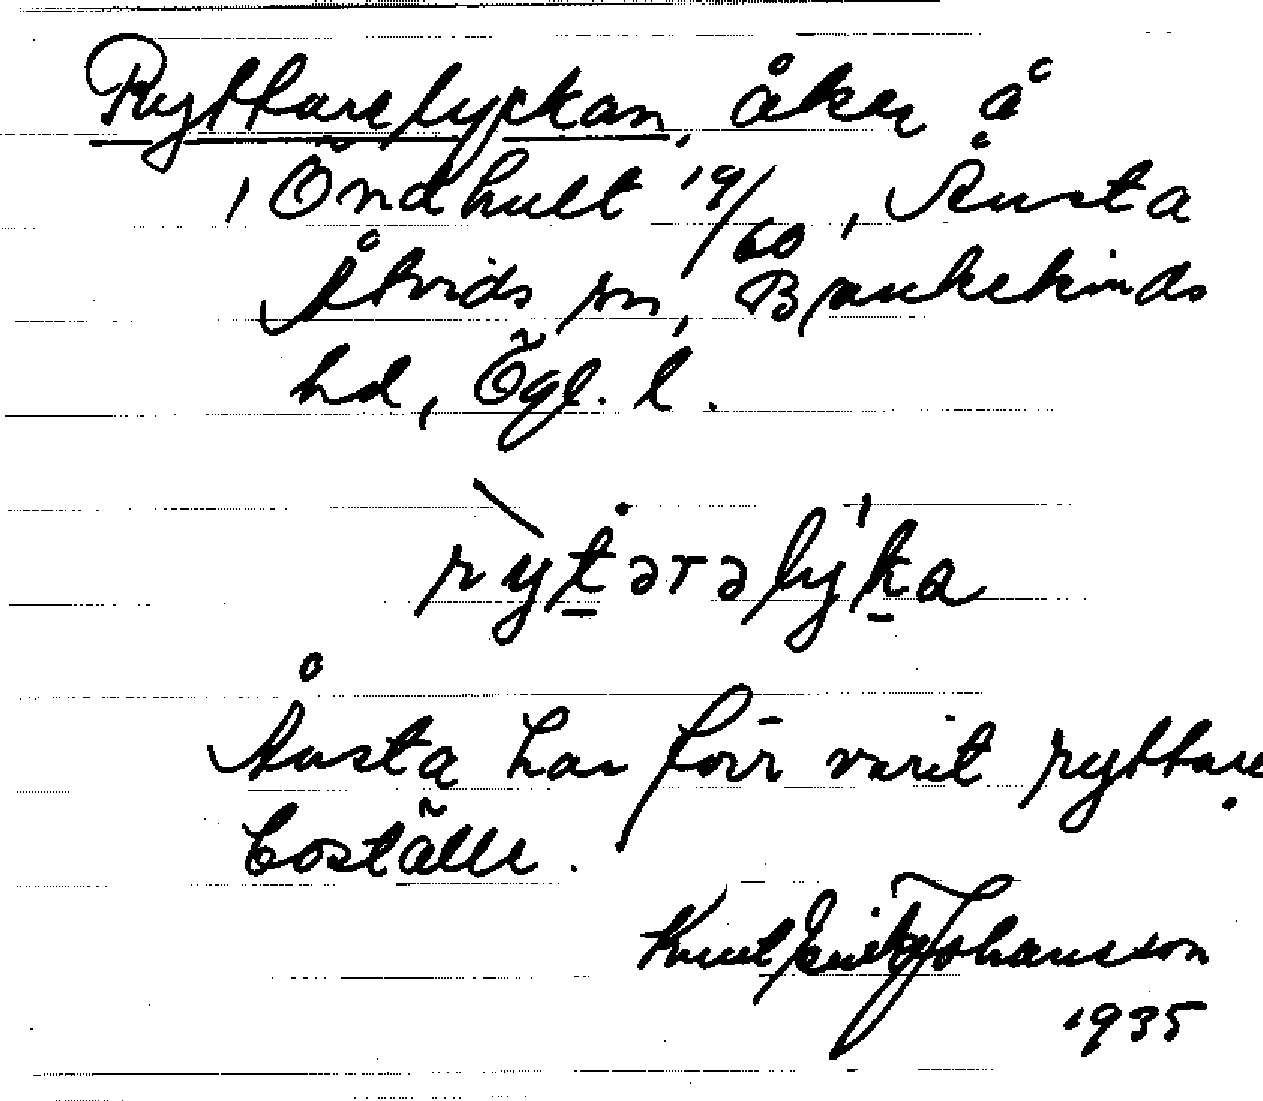 Ryttarelyckan, åker å
, Öndhult 19/60, Åusta
Åtvids sn, Bankekinds
hd, Ögl. l.
rytərəlyka
Åusta har förr varit ryttare
boställe.
Knut Erik Johansson
1935